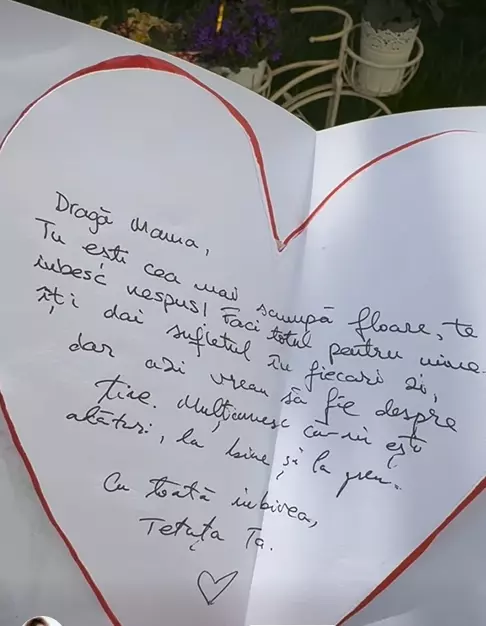 Dragă Mama,
Tu ești cea mai scumpă floare, te
iubesc nespus! Faci totul pentru mine
îți dai sufletul în fiecare zi,
dar azi vreau să fie despre
tine. Mulțumesc că-mi ești
alături, la bine și la greu.
Cu toată iubirea,
Tetuța Ta.